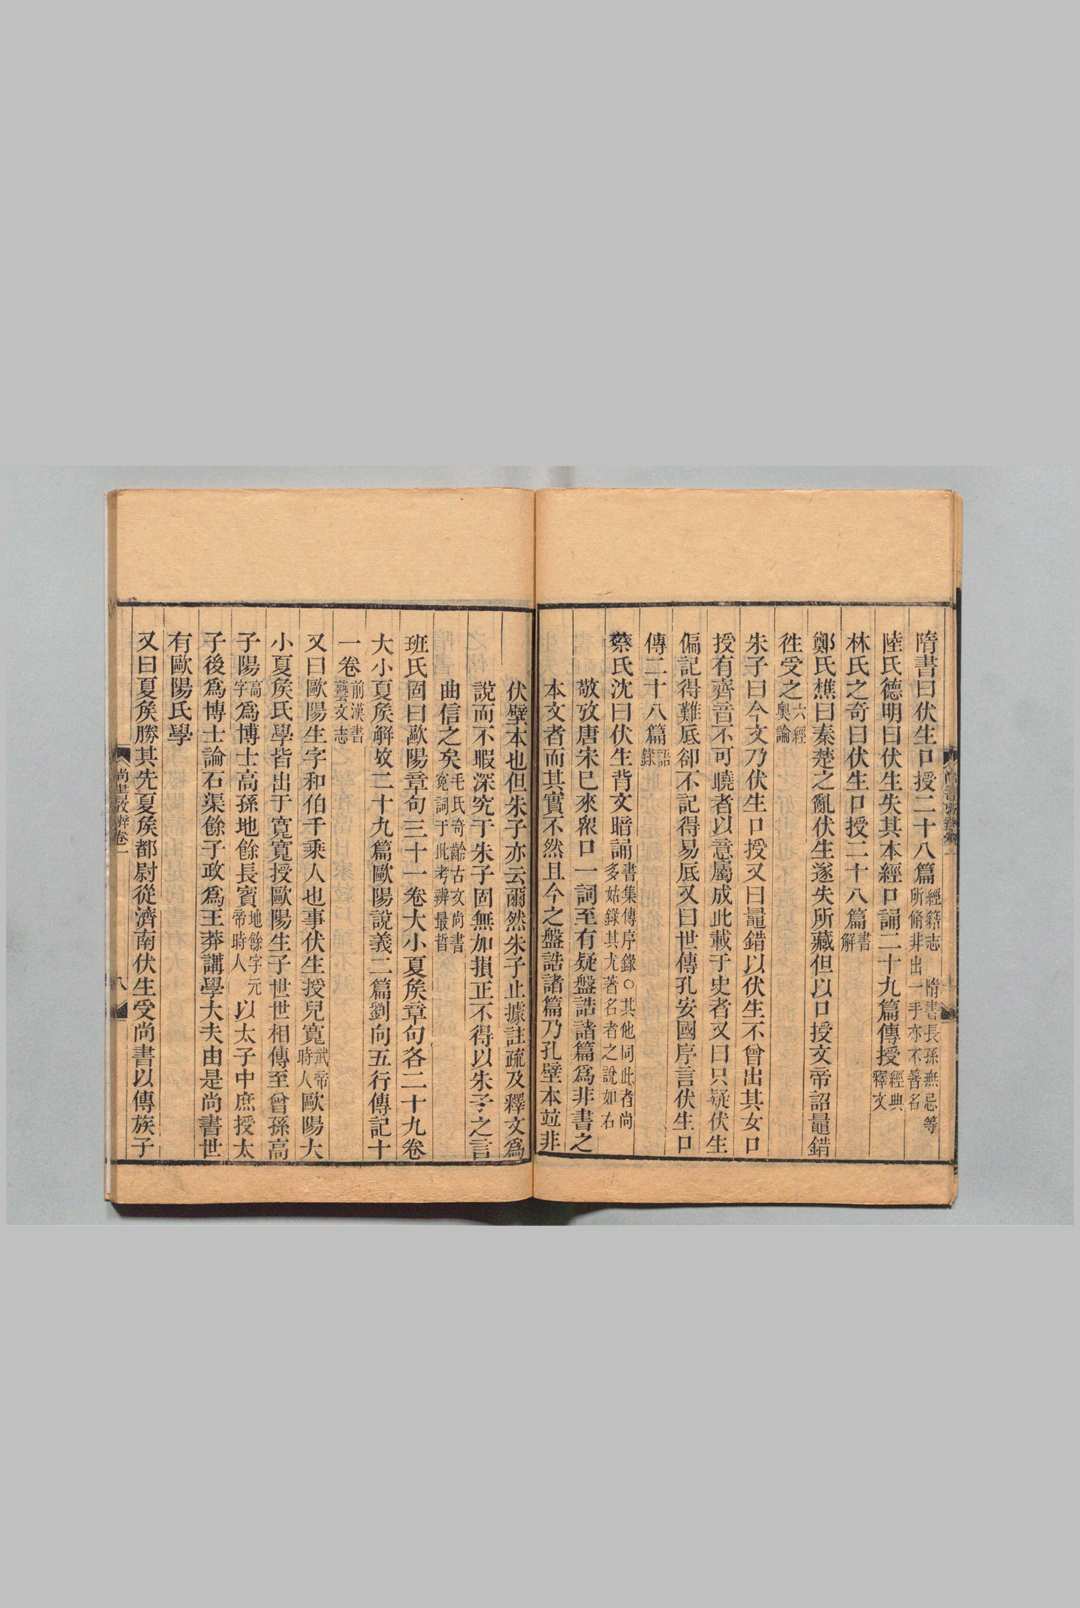 隋書曰伏生口授二十八篇經籍志 隋書長孫無忌等所脩非出一手亦不著名
陸氏德明曰伏生失其本經口誦二十九篇傳授經典釋文
林氏之奇曰伏生口授二十八篇書解
鄭氏樵曰秦楚之亂伏生遂失所藏但以口授文帝詔鼂錯
徃受之六經奧論
朱子曰今文乃伏生口授又曰鼂錯以伏生不曾出其女口
授有齊音不可曉者以意屬成此載于史者又曰只疑伏生
偏記得難底卻不記得易底又曰世傳孔安國序言伏生口
傳二十八篇語錄
蔡氏沈曰伏生背文暗誦書集傳序錄○其他同此者尚多姑錄其尤著名者之說如右
敬攷唐宋已來衆口一詞至有疑盤誥諸篇爲非書之
本文者而其實不然且今之盤誥諸篇乃孔壁本竝非
伏壁本也但朱子亦云爾然朱子止據註疏及釋文爲
說而不暇深究于朱子固無加損正不得以朱子之言
曲信之矣毛氏奇齡古文尚書冤詞于此考辨最晳
班氏固曰歐陽章句三十一卷大小夏矦章句各二十九卷
大小夏矦解故二十九篇歐陽說義二篇劉向五行傳記十
一卷前漢書藝文志
又曰歐陽生字和伯千乘人也事伏生授兒寬武帝時人歐陽大
小夏矦氏學皆出于寬寬授歐陽生子世世相傳至曾孫高
子陽高字爲博士高孫地餘長賓地餘字元帝時人以太子中庶授太
子後爲博士論石渠餘子政爲王莽講學大夫由是尚書世
有歐陽氏學
又曰夏矦勝其先夏矦都尉從濟南伏生受尚書以傳族子
尚書攷辨卷一
八